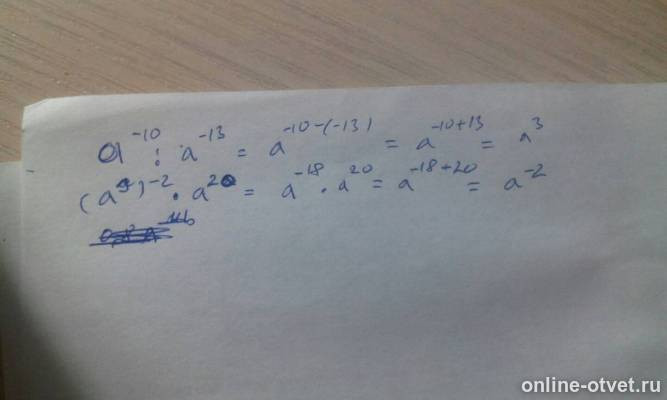 a^-10 : a^-13 = a^-10-(-13) = a^-10+13 = a^3
(a^9)^-2 · a^20 = a^-18 · a^20 = a^-18+20 = a^-2
online-otvet.ru